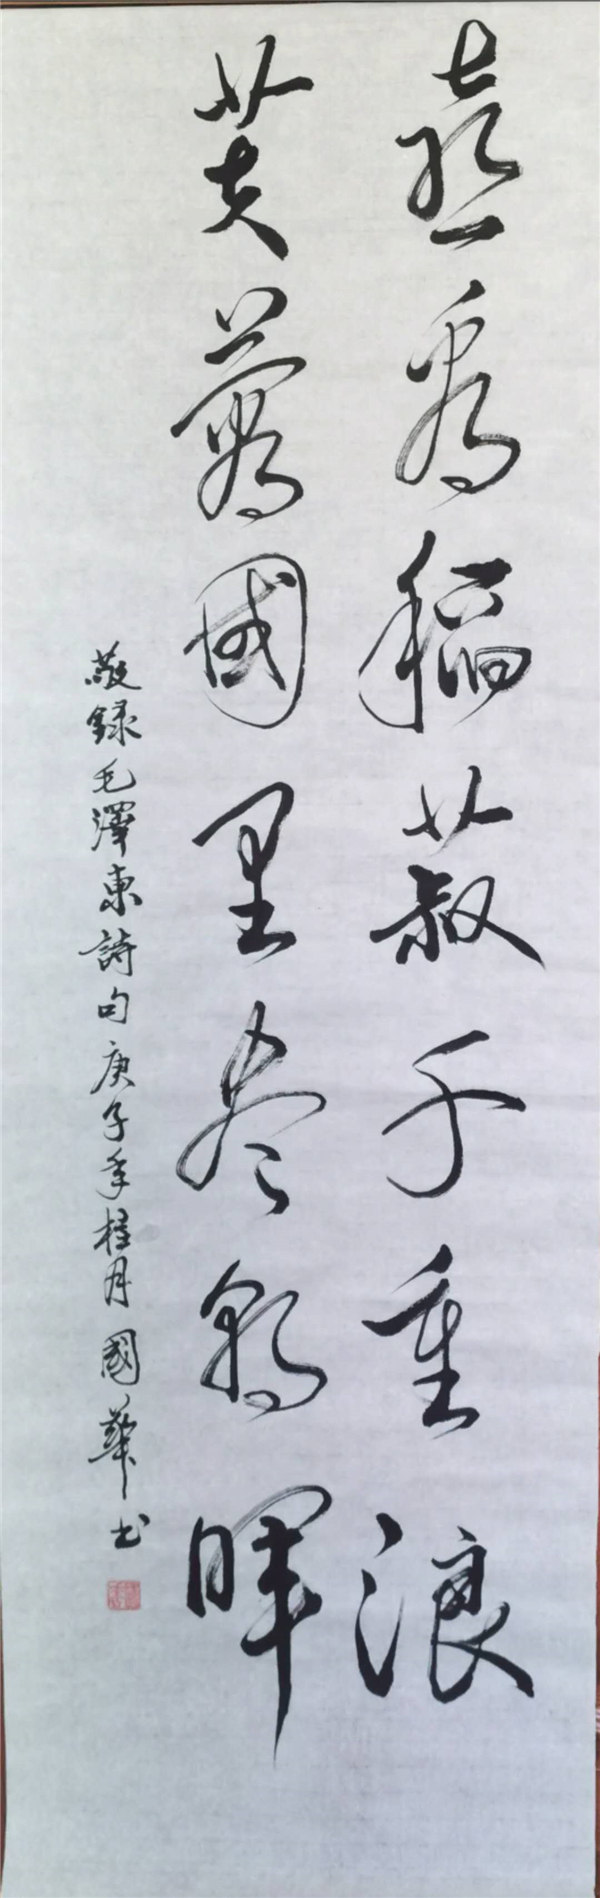 喜看稻菽千重浪
芙蓉國里尽朝暉
敬錄毛澤東詩句庚子年桂月國華书